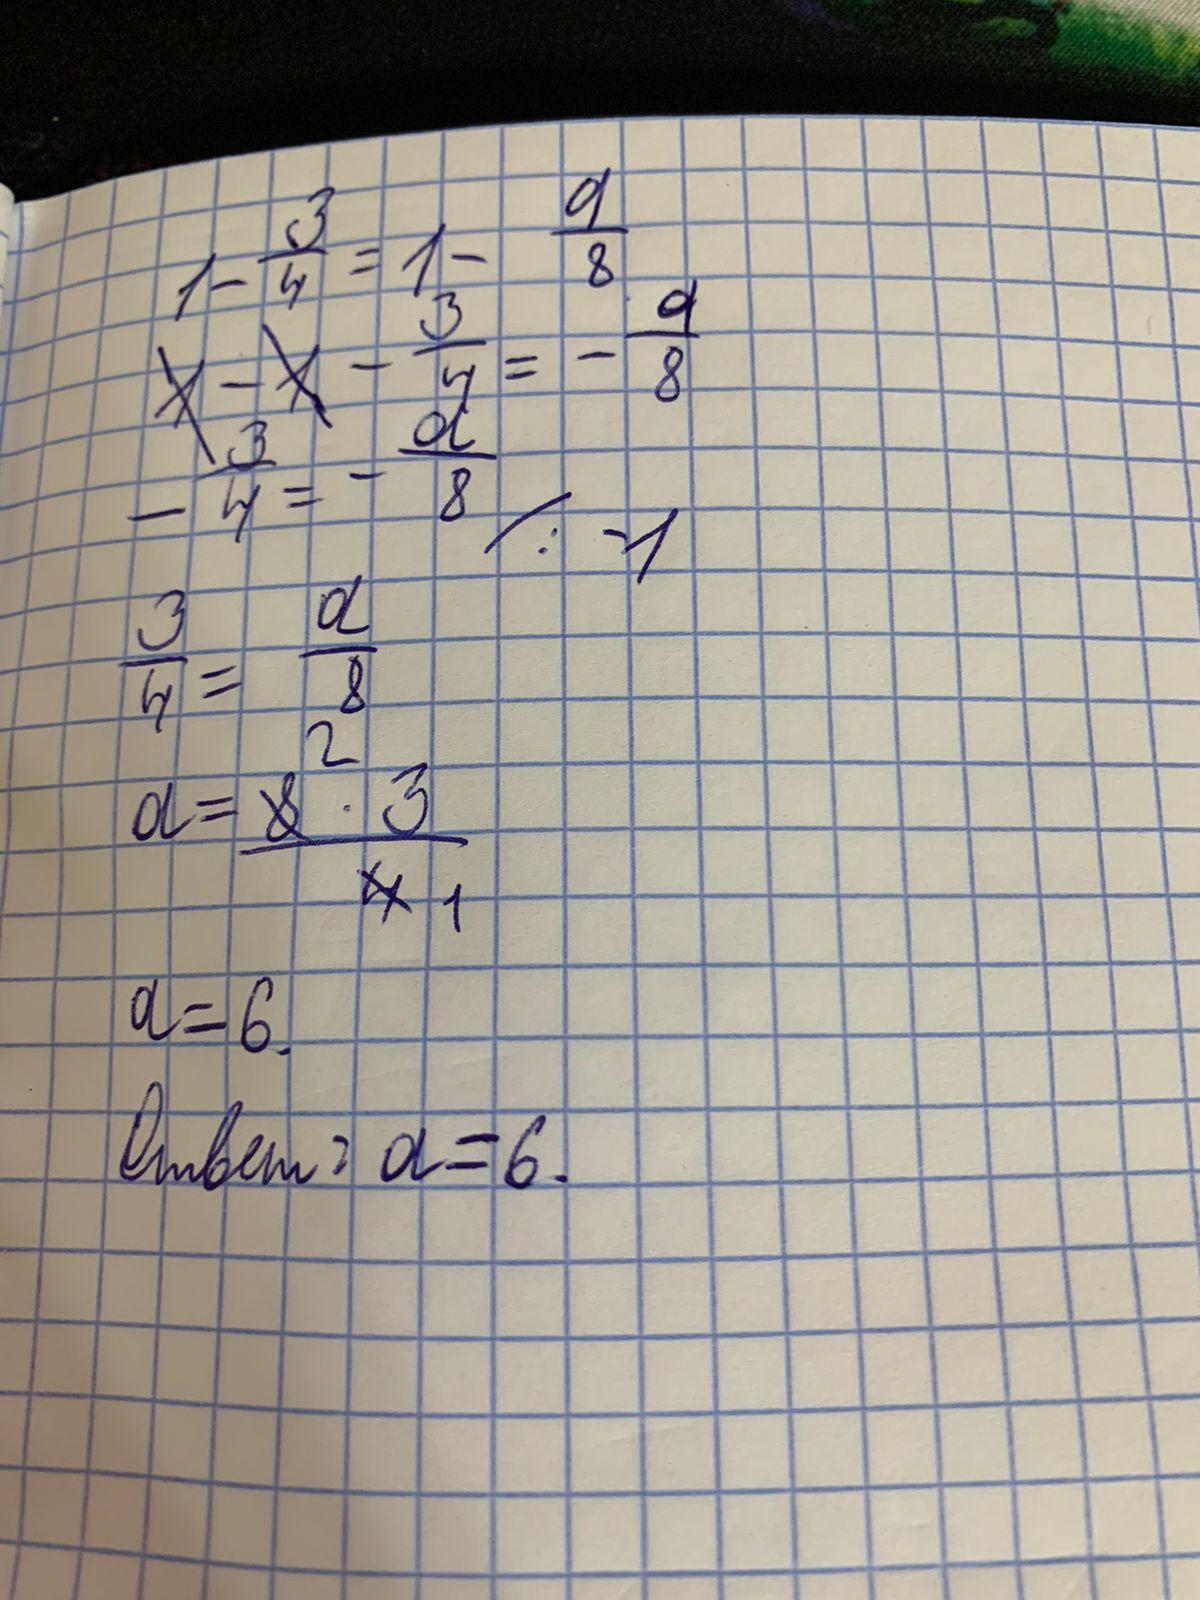 1 - 3/4 = 1 - a/8
1 - 1 - 3/4 = - a/8
- 3/4 = - a/8 /: -1
3/4 = a/8
2
a = 8 · 3 / 4 1
a = 6.
Ответ: a = 6.